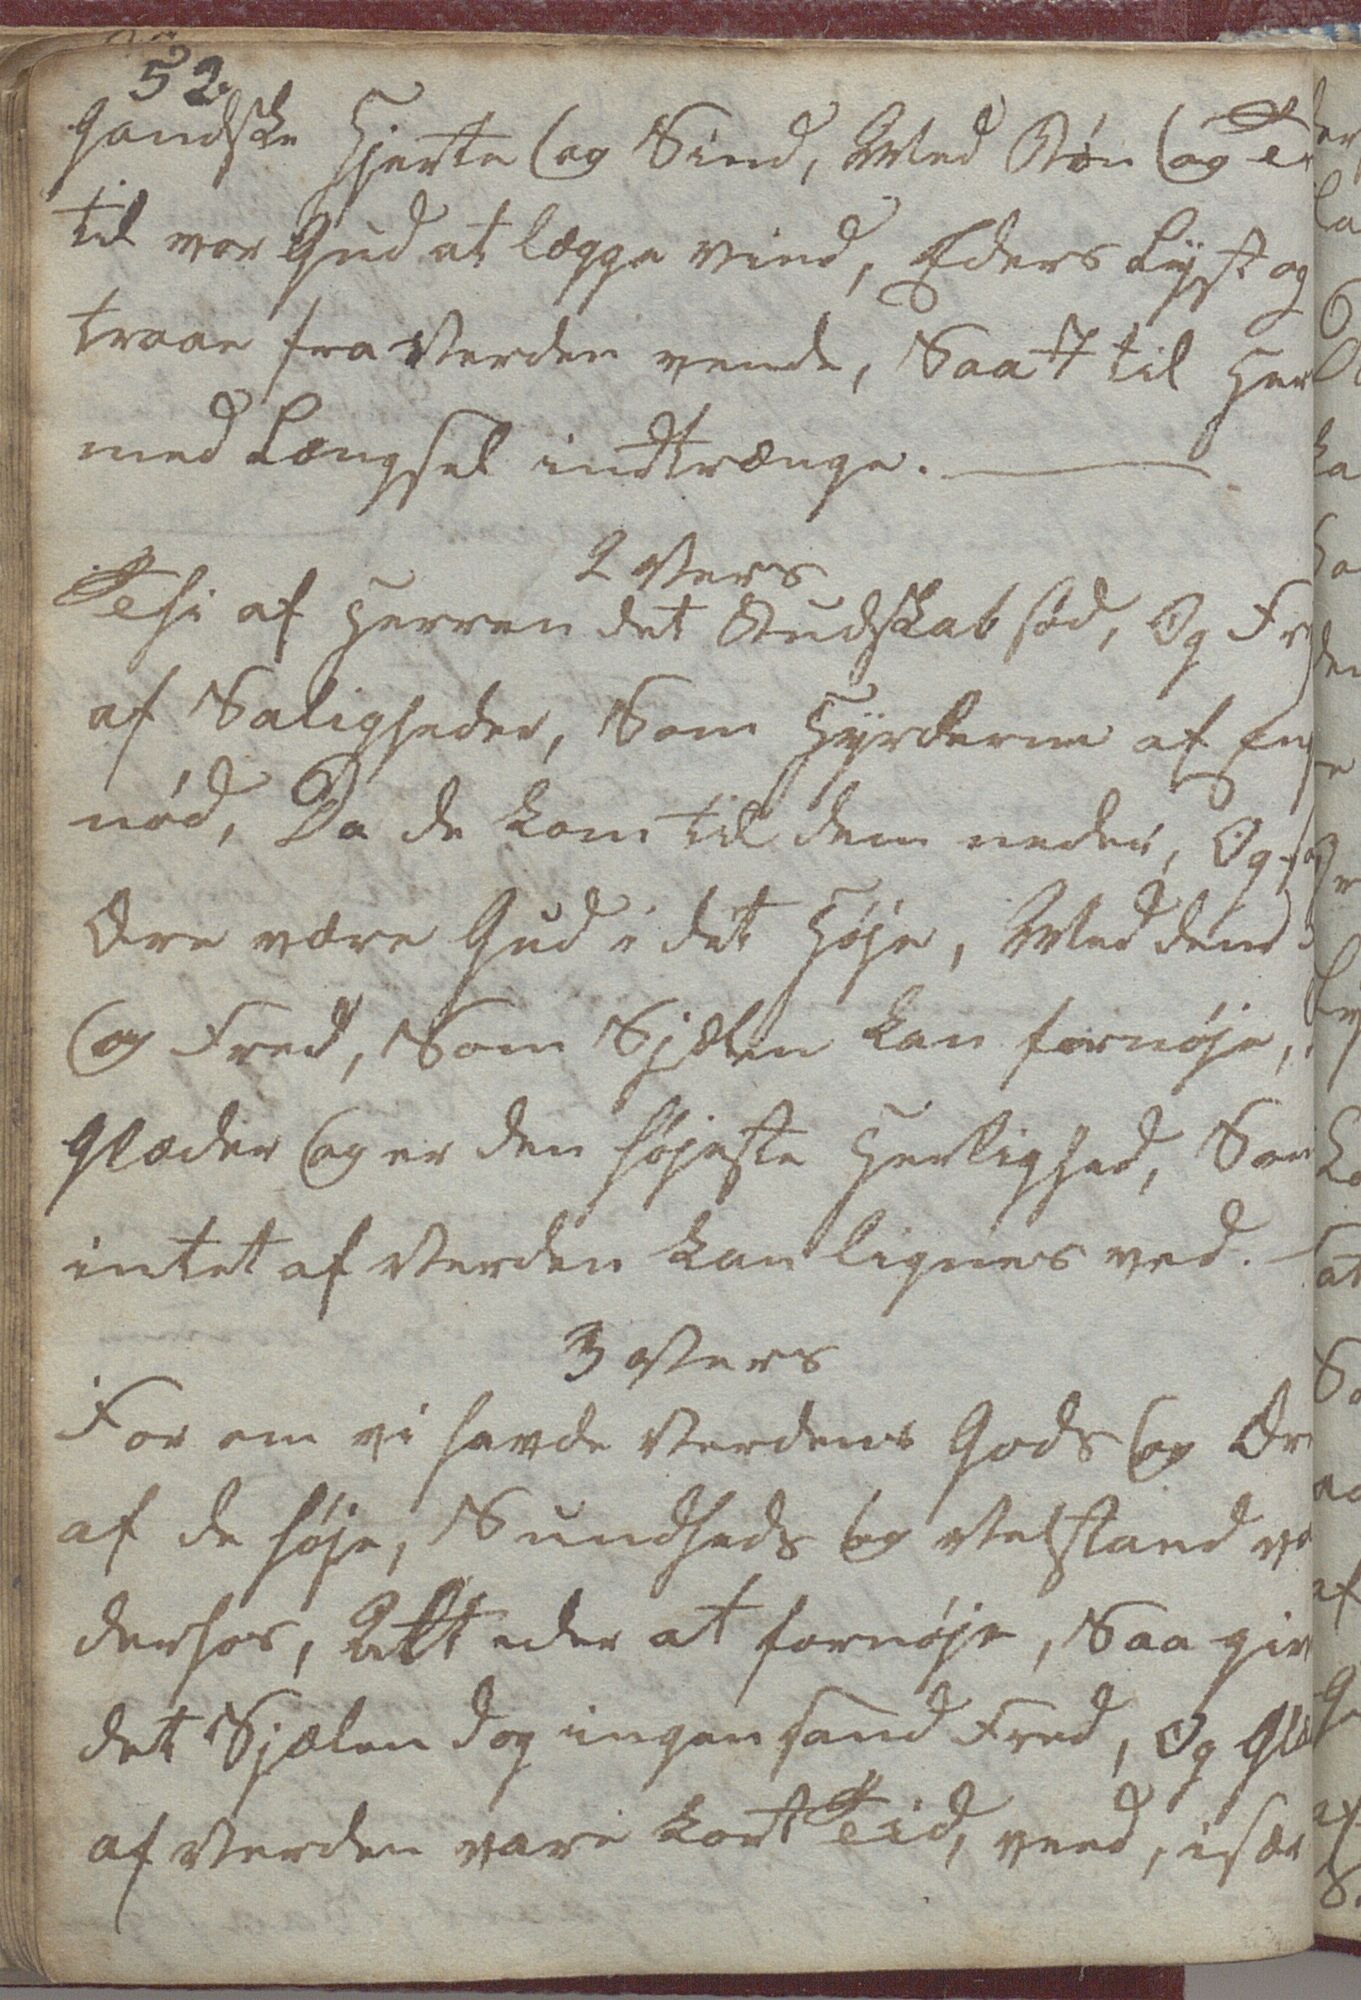 52
Gandske Hjerte og Sind, Med Bøn og
til vor Gud at lægge vind, Eders Lÿst og
traae fra Verden vende, Saatt til Her
med Længsel indtrænge.
2 Vers
Thi af Herren det Budskab sød, Og Fr
af Saligheder, Som Hÿrderne af En
nød, Da de kom til dem neder, Og sa
Ære være Gud i det Høje, Med dend
og Fred, Som Sjælen kan fornøje,
Glæder og er den højeste Herlighed, Som
intet af Verden kan lignes ved.
3 Vers
For om vi havde Verdens Gods og Ær
af de høje, Sundheds og Velstand va
derhos, Altt eder at fornøje, Saa giv
det Sjælen dog ingen sand Fred, Og Glæ
af Verden vare kort Tid, veed, især